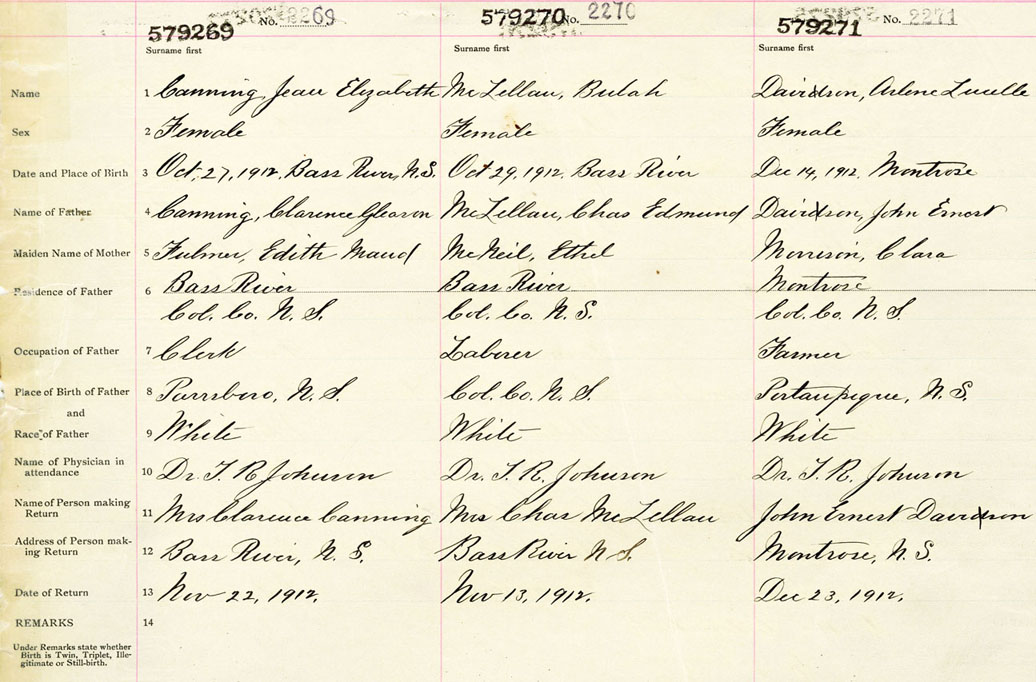 579269 No. 2269 579270 No. 2270 579271 No. 2271
Surname first Surname first Surname first
Name 1 Canning, Jean Elizabeth McLellan, Bulah Davidson, Arlene Lucelle
Sex 2 Female Female Female
Date and Place of Birth 3 Oct. 27, 1912, Bass River, N.S. Oct 29, 1912, Bass River Dec 14, 1912, Montrose
Name of Father 4 Canning, Clarence Gleason McLellan, Chas Edmund Davidson, John Ernest
Maiden Name of Mother 5 Fulmer, Edith Maud McNeil, Ethel Morrison, Clara
Residence of Father 6 Bass River Bass River Montrose
Col. Co. N. S. Col. Co. N. S. Col. Co. N. S.
Occupation of Father 7 Clerk Laborer Farmer
Place of Birth of Father 8 Parrsboro, N. S. Col. Co. N. S. Portaupique, N. S.
and
Race of Father 9 White White White
Name of Physician in
attendance 10 Dr. T. R. Johnson Dr. T. R. Johnson Dr. T. R. Johnson
Name of Person making
Return 11 Mrs Clarence Canning Mrs Chas McLellan John Ernest Davidson
Address of Person mak-
ing Return 12 Bass River, N. S. Bass River N. S. Montrose, N. S.
Date of Return 13 Nov 22, 1912. Nov 13, 1912. Dec 23, 1912.
REMARKS 14
Under Remarks state whether
Birth is Twin, Triplet, Ille-
gitimate or Still-birth.